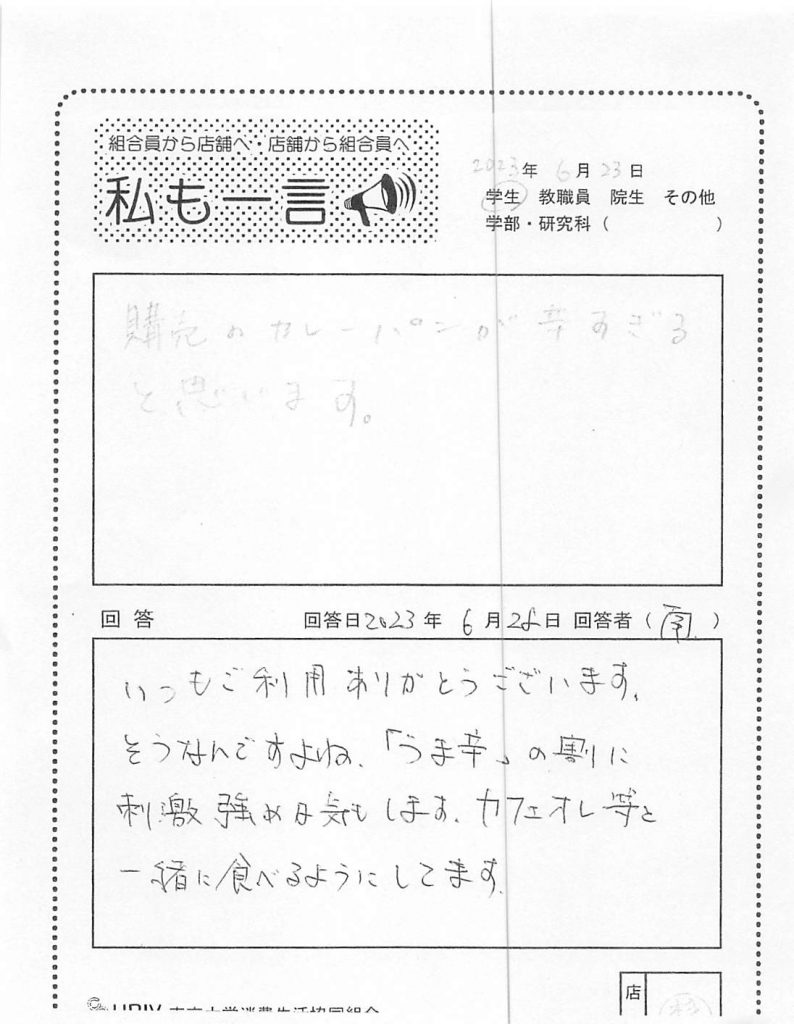 組合員から店舗へ・店舗から組合員へ
私も一言
2023年 6月23日
学生 教職員 院生 その他
学部・研究科( )
購売のカレーパンが辛すぎる
と思います。
回答 回答日2023年 6月28日 回答者( )
いつもご利用ありがとうございます。
そうなんですよね、「うま辛」の割に
刺激強めな気もします。カフェオレ等と
一緒に食べるようにしてます。
店